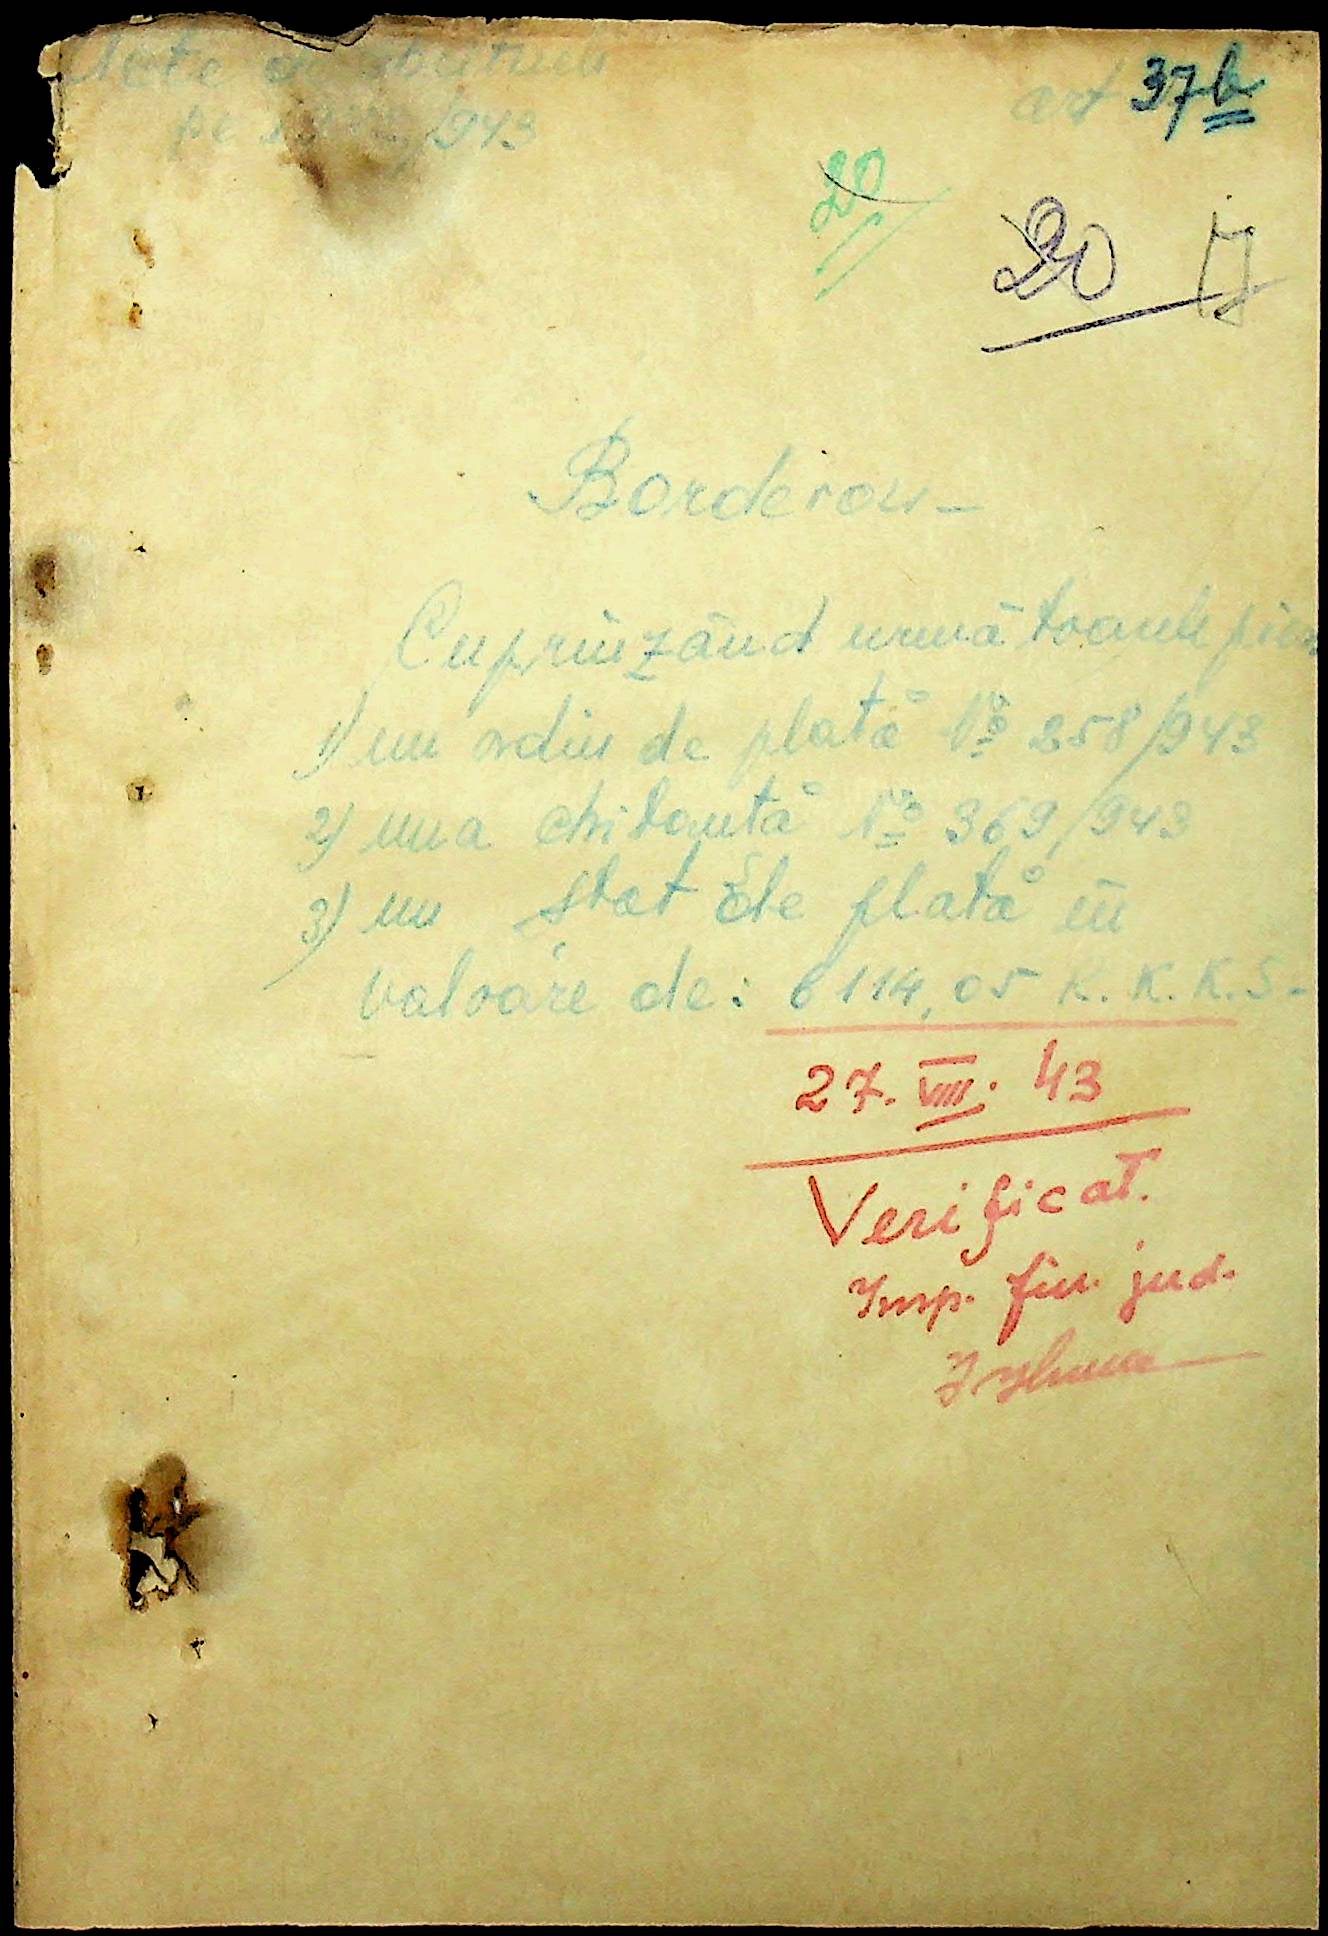 Acte
art 37b
pe /943
20
20
Borderou-
Cuprinzând următoarele
1) un ordin de plată No 258/943
2) una chitantă No 369/943
3) un stat de plată în
valoare de: 6114,05 R.K.K.S-
27. VIII. 43
Verificat.
Insp. fin. jud.